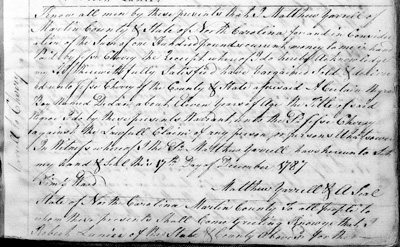 Know all men by these presents that I Matthew Yarrell of
Martin County & State of North Carolina for and in Consider
ation of the Sum of one Hundred pounds current money to me in hand
P'd by Jesse Cherry the Receipt whereof I do hereby acknowledge
my Self therewith fully Satisfied have bargained Sold & deliver
ed unto Jesse Cherry of the County & State aforesaid A Certain Negro
Boy Named about Eleven years of Age the Title of said
Negro I do by these presents Warrant unto the Sd Jesse Cherry
against the Lawfull Claim of any person or persons Whatsoever
In Witness whereof I the Sd Matthew Yarrell have hereunto Set
my Hand & Seal this 17th Day of December 1787
Ward
Matthew Yarrell & A Seal
State of North Carolina Martin County To all people to
whom these presents Shall Come Greeting Know ye that I
Robert Lanier of the State & County
Yarrell Cherry